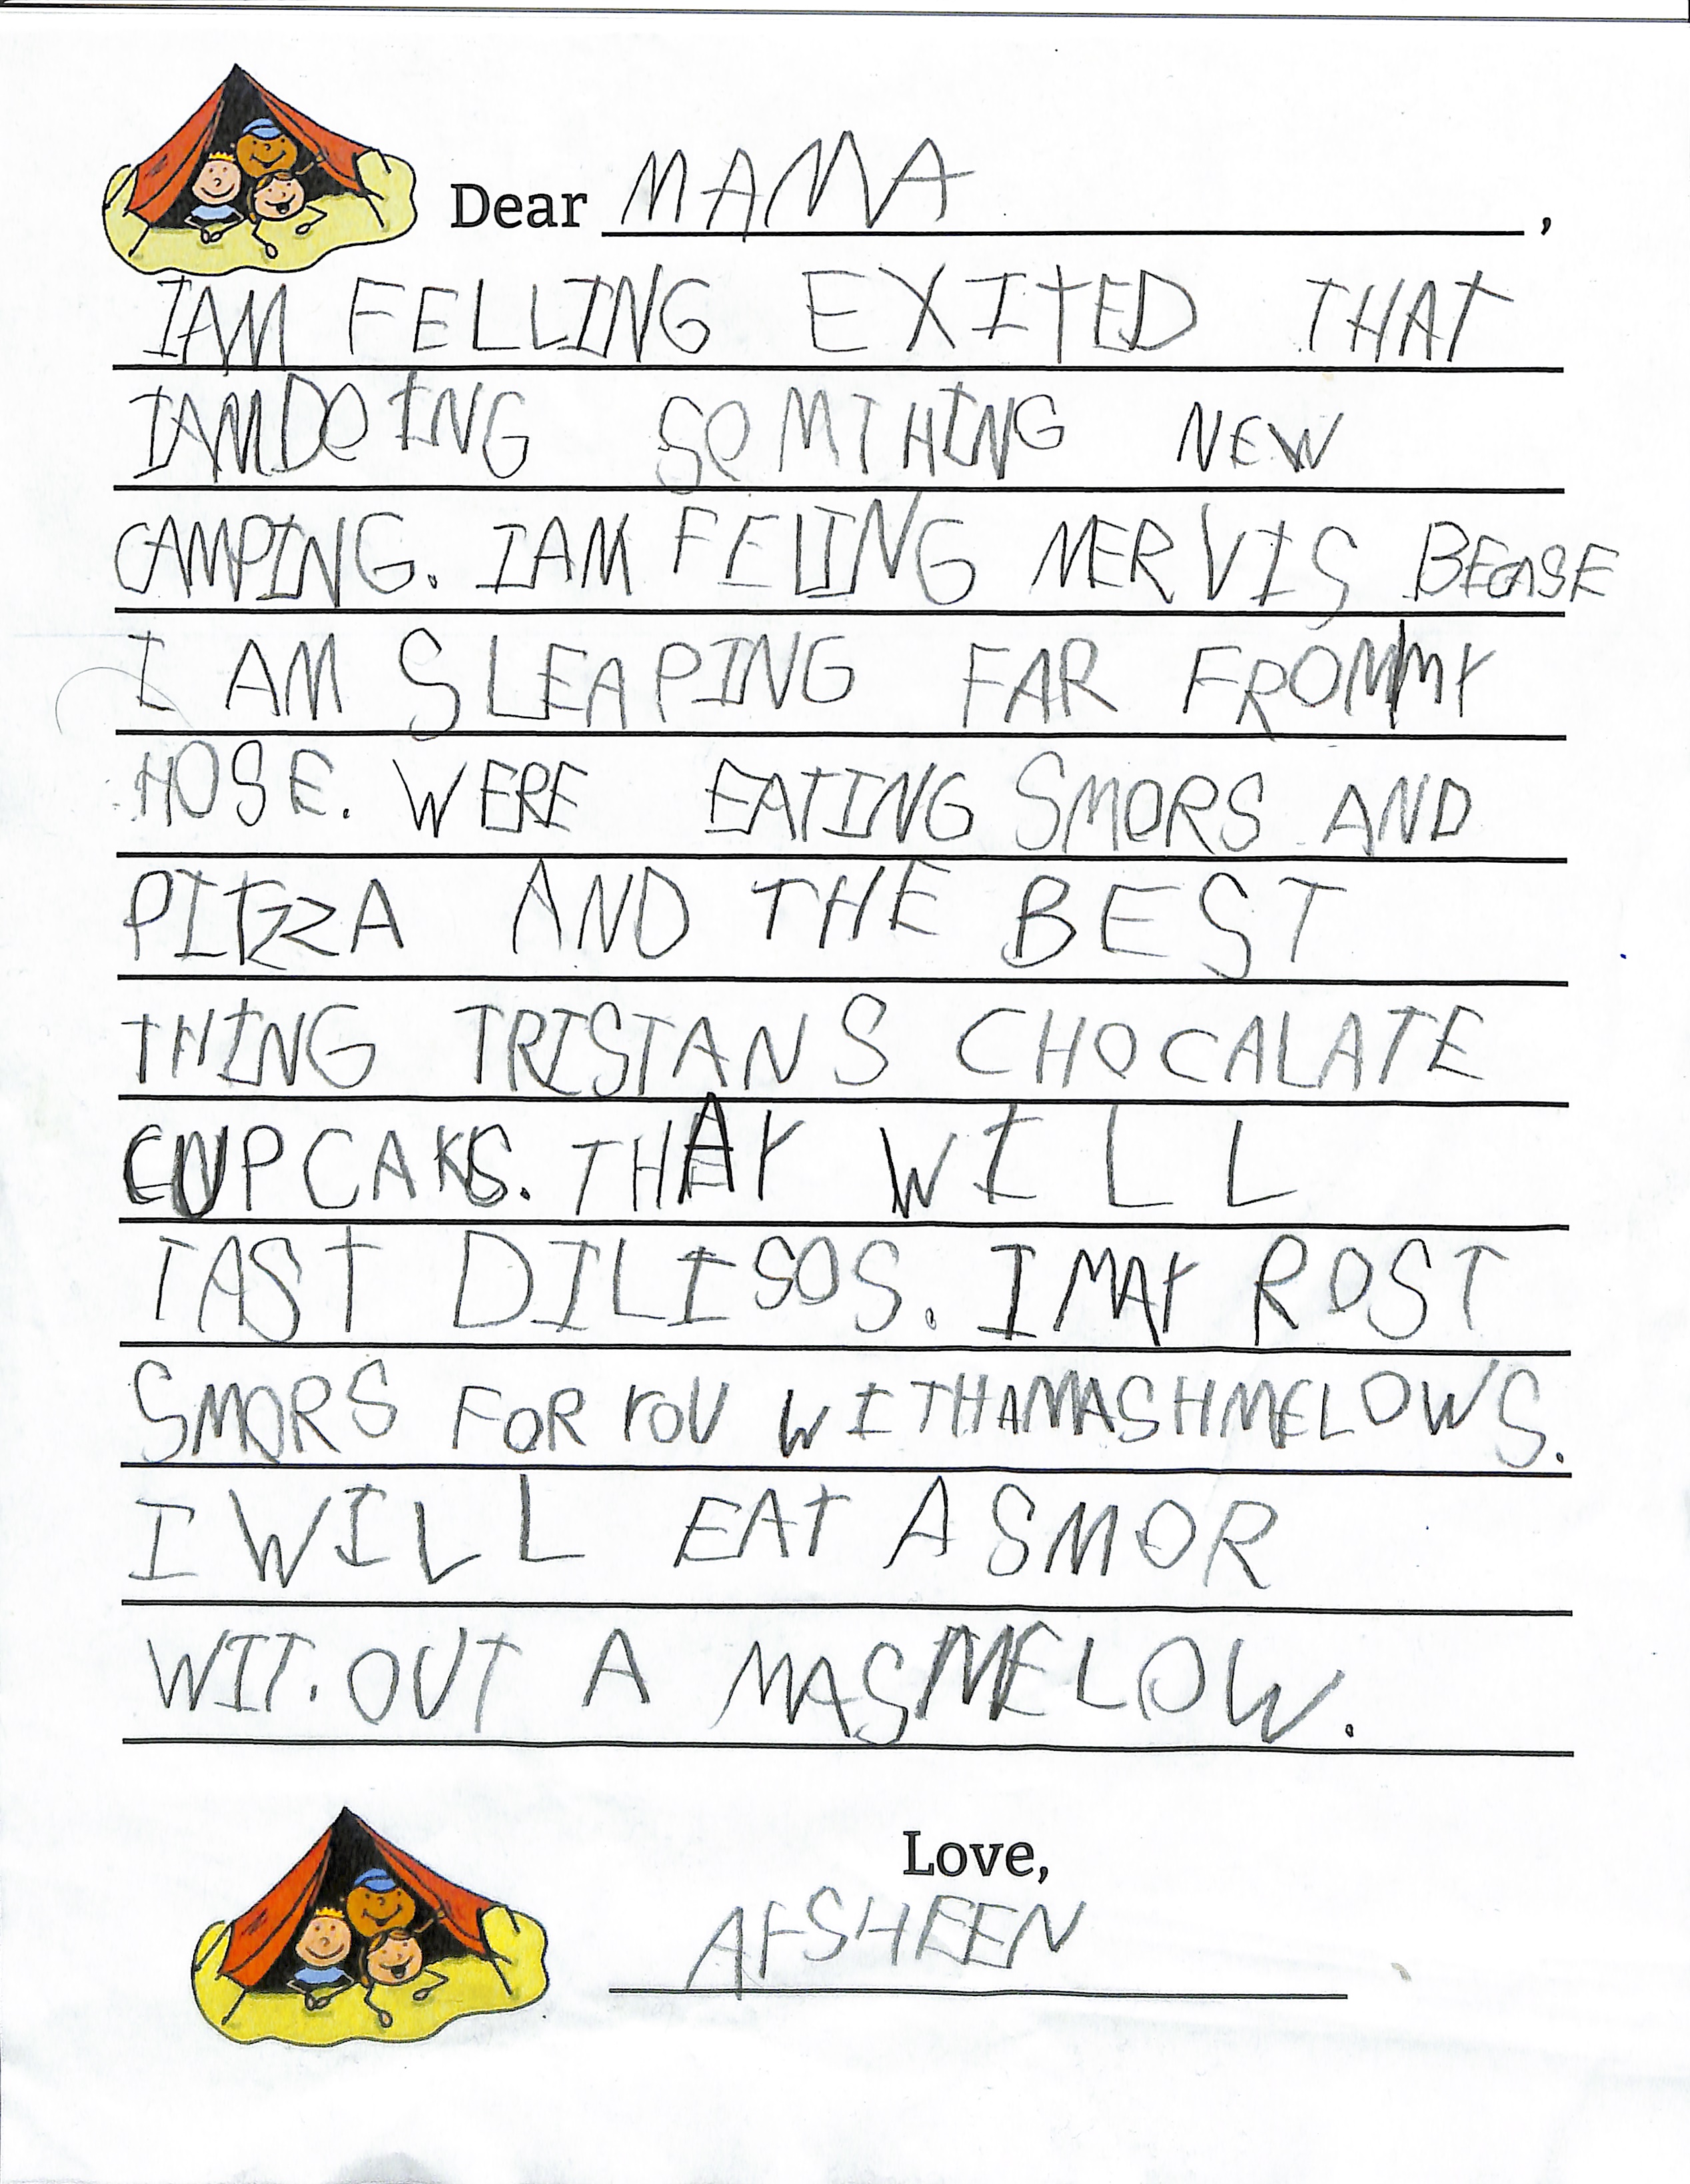 Dear MAMA,
I AM FELLING EXITED THAT
I AM DOING SOMTHING NEW
CAMPING. I AM FELING NERVIS BECASE
I AM SLEAPING FAR FROM MY
HOSE. WERE EATING SMORS AND
PITZZA AND THE BEST
THING TRISTANS CHOCALATE
CUPCAKS. THAY WILL
TAST DILISOS. I MAY ROST
SMORS FOR YOU WITH A MASHMELOWS.
I WILL EAT A SMOR
WIT.OUT A MASMELOW.
Love,
AFSHEEN